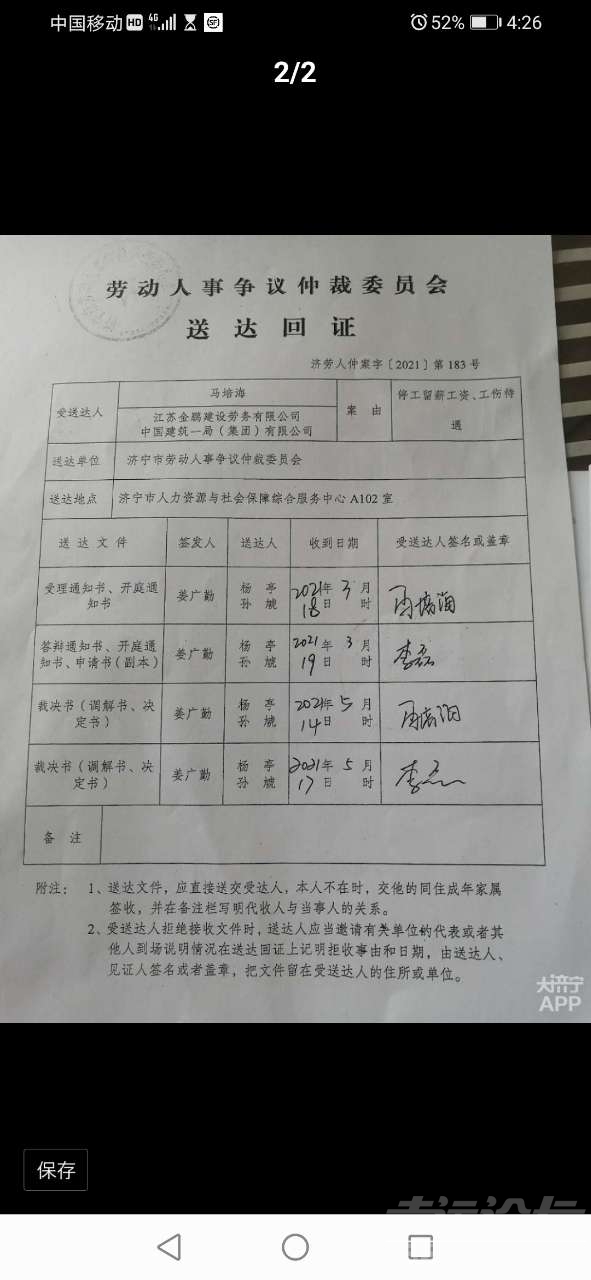 中国移动 HD 4G 52% 4:26
2/2
劳动人事争议仲裁委员会
送达回证
济劳人仲案字〔2021〕第183号
受送达人
马培海
江苏金鹏建设劳务有限公司
中国建筑一局(集团)有限公司
案由
停工留薪工资、工伤待
遇
送达单位 济宁市劳动人事争议仲裁委员会
送达地点 济宁市人力资源与社会保障综合服务中心A102室
送达文件 签发人 送达人 收到日期 受送达人签名或盖章
受理通知书、开庭通
知书
姜广勤
杨亭
孙
2021年3月
18日 时
马培海
答辩通知书、开庭通
知书、申请书(副本)
姜广勤
杨亭
孙
2021年3月
19日 时
李磊
裁决书(调解书、决
定书)
姜广勤
杨亭
孙
2021年5月
14日 时
马培海
裁决书(调解书、决
定书)
姜广勤
杨亭
孙
2021年5月
17日 时
李磊
备注
附注: 1、送达文件,应直接送交受达人,本人不在时,交他的同住成年家属
签收,并在备注栏写明代收人与当事人的关系。
2、受送达人拒绝接收文件时,送达人应当邀请有关单位的代表或者其
他人到场说明情况在送达回证上记明拒收事由和日期,由送达人、
见证人签名或者盖章,把文件留在受送达人的住所或单位。
大济宁
APP
保存